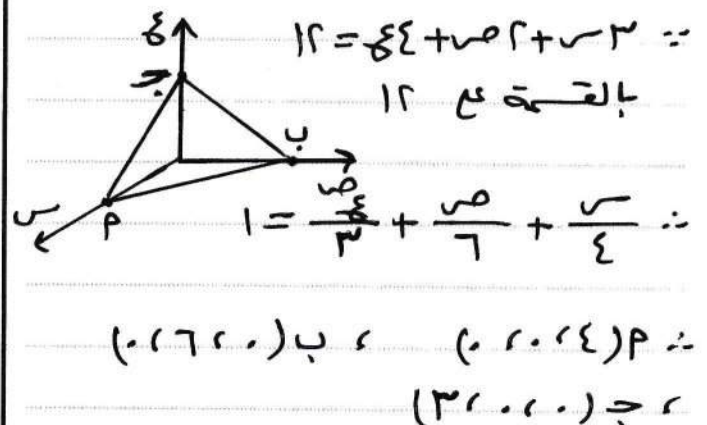 ∵ ٣س + ٢ص + ٤ع = ١٢
بالقسمة ع ١٢
∴ س/٤ + ص/٦ + ع/٣ = ١
∴ م(٤، ٠، ٠) ، ب(٠، ٦، ٠)
، جـ(٠، ٠، ٣)
ع
جـ
ب
ص
م
س